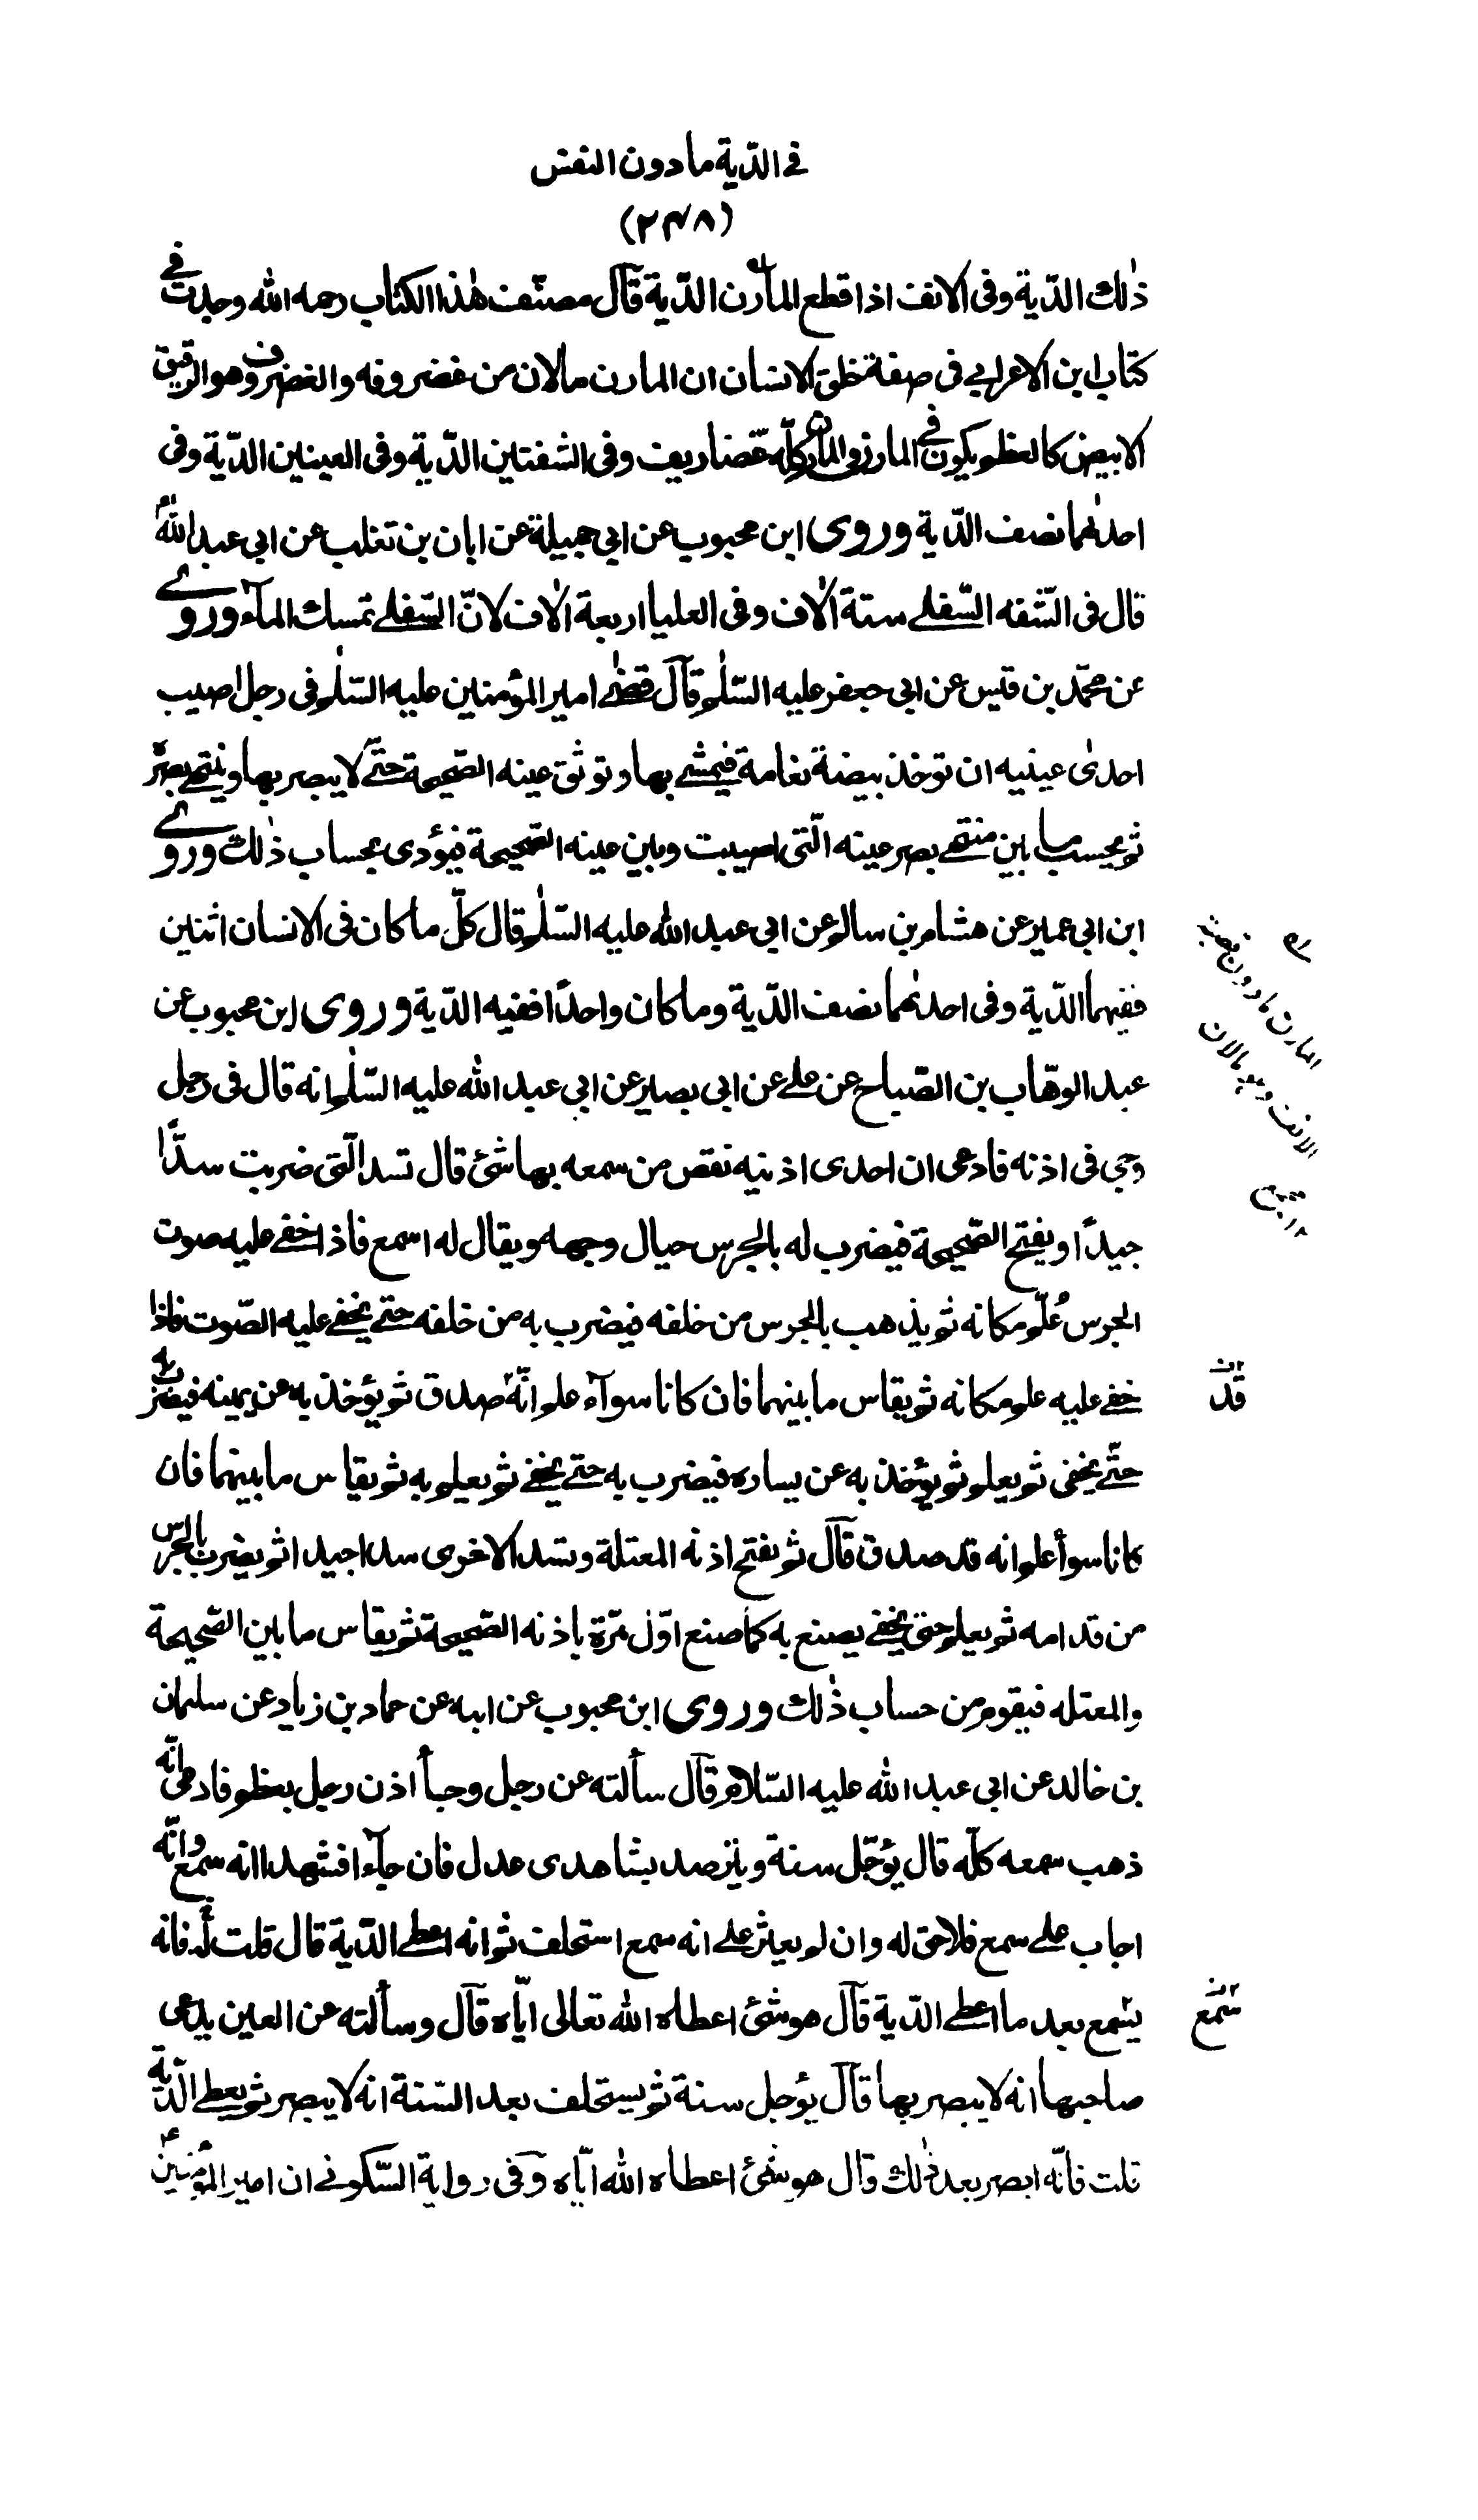 في الدّية ما دون النفس
(۲۴۸)
ذٰلك الدّية وفى الانف اذا قطع المارن الدّية قال مصنّف هٰذا الكتاب رحمه الله وجدت في
كتاب ابن الاعرابي فى صفة خلق الانسان ان المارن ما لان من غضروفه والغضروف وهو الرقيق
الابيض كالعظم يكون في المارن وفي المارن كلّه غضاريف وفى الشفتين الدّية وفى العينين الدّية وفى
احدٰهما نصف الدّية وروى ابن محبوب عن ابي جميلة عن ابان بن تغلب عن ابي عبد الله
قال فى الشّفه السّفلے ستة اٰلاف وفى العليا اربعة اٰلاف لانّ السّفلے تمسك المآء وروے
عن محمّد بن قيس عن ابى جعفر عليه السّلٰم قال قضٰے امير المؤمنين عليه السّلٰم فى رجل اصيب
احدىٰ عينيه ان توخذ بيضة نعامة فيمشے بها وتوثق عينه الصّحيحة حتّے لا يبصر بها وينتهے بصره
ثم يحسب ما بين منتهے بصر عينه الّتى اصيبت وبين عينه الصّحيحة فيؤدى بحساب ذٰلك وروے
ابن ابى عمير عن هشام بن سالم عن ابي عبد الله عليه السّلٰم قال كلّ ما كان فى الانسان اثنين
ففيهما الدّية وفى احدٰهما نصف الدّية وما كان واحدًا ففيه الدّية وروى ابن محبوب عن
عبد الوهّاب بن الصّباح عن علے عن ابى بصير عن ابي عبد الله عليه السّلٰم انه قال فى رجل
وجي فى اذنه فادعى ان احدى اذنيه نقص من سمعه بها شئ قال تسد الّتى ضربت سدًّا
جيدًا ويفتح الصّحيحة فيضرب له بالجرس حيال وجهه ويقال له اسمع فاذا خفے عليه صوت
الجرس عُلّم مكانه ثم يذهب بالجرس من خلفه فيضرب به من خلفه حتے يخفے عليه الصّوت فاذا
خفے عليه علم مكانه ثم يقاس ما بينهما فان كانا سوآء علم انّه صدق ثم يؤخذ به عن يمينه فيضرب به
حتّے يخفى ثم يعلم ثم يؤخذ به عن يساره فيضرب به حتے يخفے ثم يعلم به ثم يقاس ما بينهما فان
كانا سوأ علم انه قد صدق قال ثم يفتح اذنه المعتلة وتسد الاخرى سدا جيدا ثم يضرب بالجرس
من قدامه ثم يعلم حتى يخفے يصنع به كما صنع اوّل مرّة باذنه الصّحيحة ثم يقاس ما بين الصّحيحة
والمعتله فيقوم من حساب ذٰلك وروى ابن محبوب عن ابيه عن حماد بن زياد عن سليمان
بن خالد عن ابى عبد الله عليه السّلام قال سألته عن رجل وجأ اذن رجل بعظم فادعى انّه
ذهب سمعه كلّه قال يؤجّل سنة ويترصد بشاهدى عدل فان جآءا فشهدا انه سمع وانّه
اجاب علے سمع فلا حق له وان لم يعثر علے انه سمع استحلف ثم انه اعطے الدّية قال قلت له فانه
يسمع بعد ما اعطے الدّية قال هو شئ اعطاه الله تعالى ايّاه قال وسألته عن العين يدعى
صاحبها انه لا يبصر بها قال يؤجل سنة ثم يستحلف بعد السّنة انه لا يبصر ثم يعطے الدّية
قلت فانّه ابصر بعد ذٰلك قال هو شئ اعطاه الله ايّاه وفى رواية السّكونے ان امير المؤمنين
قد
سمع